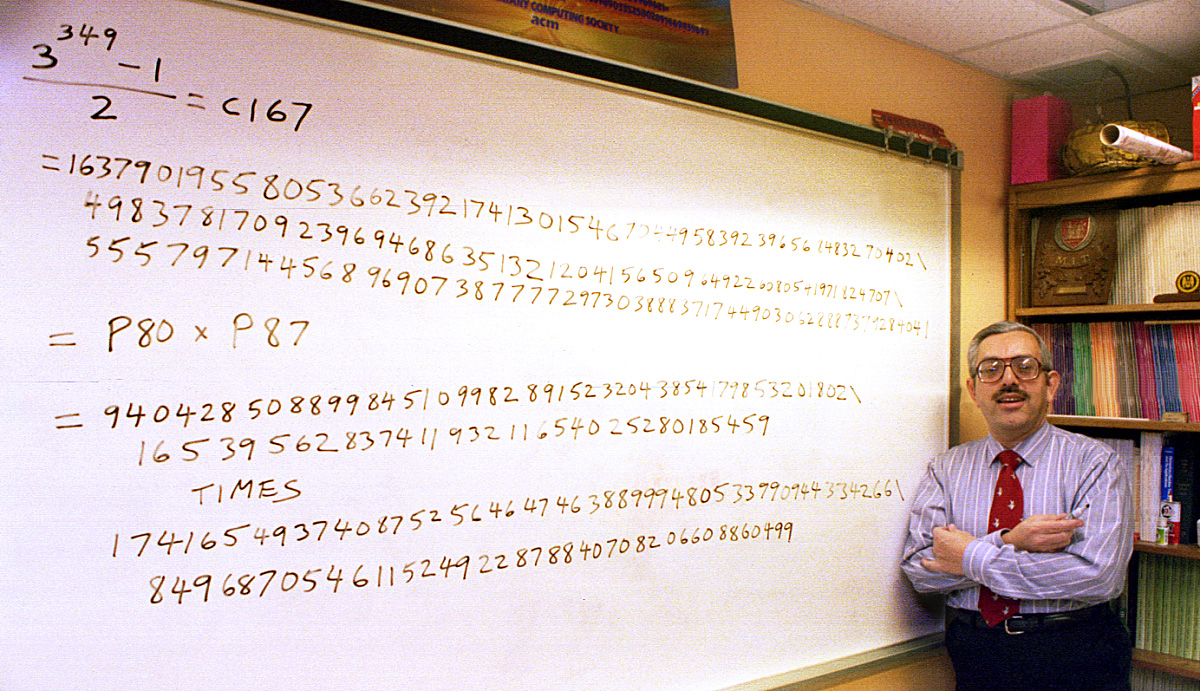 COMPUTING SOCIETY
acm
3^349 - 1
2
= C167
=1637901955805366239217413015467044958392396568483270402\
4983781709239694686351321204156509649226080541971824707\
555797144568969073877772973038883717449030628887379284041
= P80 x P87
= 9404285088998451099828915232043854179853201802\
1653956283741193211654025280185459
TIMES
174165493740875256464746388999480533990944334266\
849687054611524922878840708206608860499
M.I.T